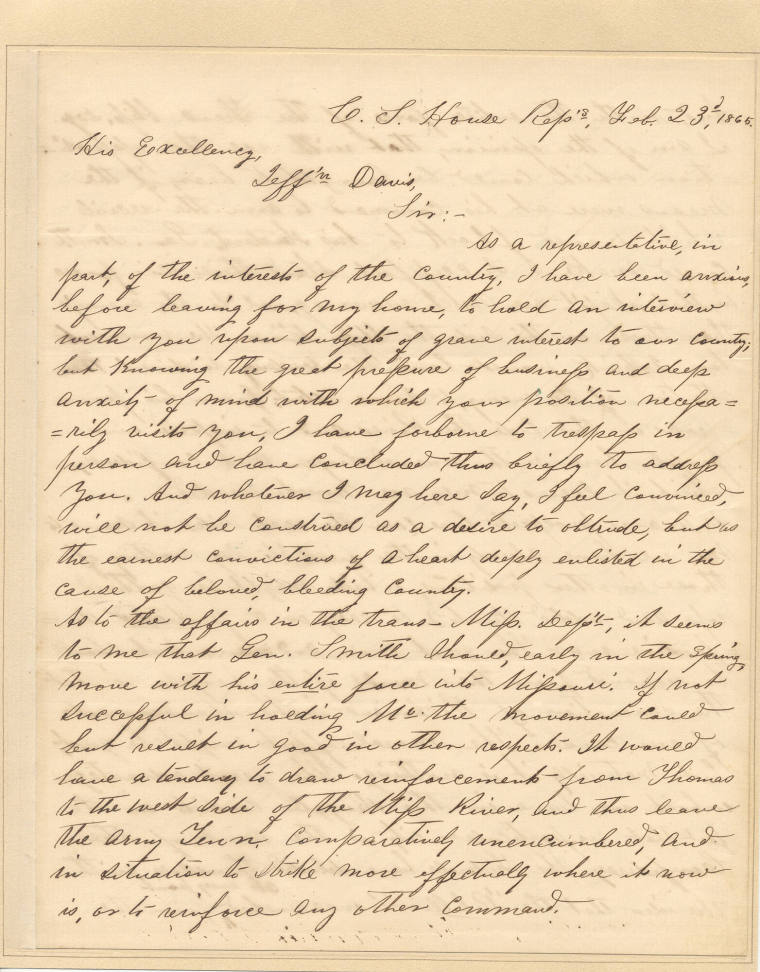 C. S. House Rep's, Feb. 23d, 1865.
His Excellency,
Jeff'n Davis,
Sir:-
As a representative, in
part, of the interests of the Country, I have been anxious,
before leaving for my home, to hold an interview
with you upon subjects of grave interest to our country;
but knowing the great pressure of business and deep
anxiety of mind with which your position necessa=
=rily visits you, I have forborne to trespass in
person and have concluded thus briefly to address
you. And whatever I may here say, I feel convinced,
will not be construed as a desire to obtrude, but as
the earnest convictions of a heart deeply enlisted in the
cause of beloved, bleeding Country.
As to the affairs in the trans-Miss. Dep't, it seems
to me that Gen. Smith should, early in the Spring,
move with his entire force into Missouri. If not
successful in holding Mo. the movement could
but result in good in other respects. It would
have a tendency to draw reinforcements from Thomas
to the west side of the Miss River, and thus leave
the army Tenn. comparatively unencumbered, and
in situation to strike more effectually where it now
is, or to reinforce any other command.